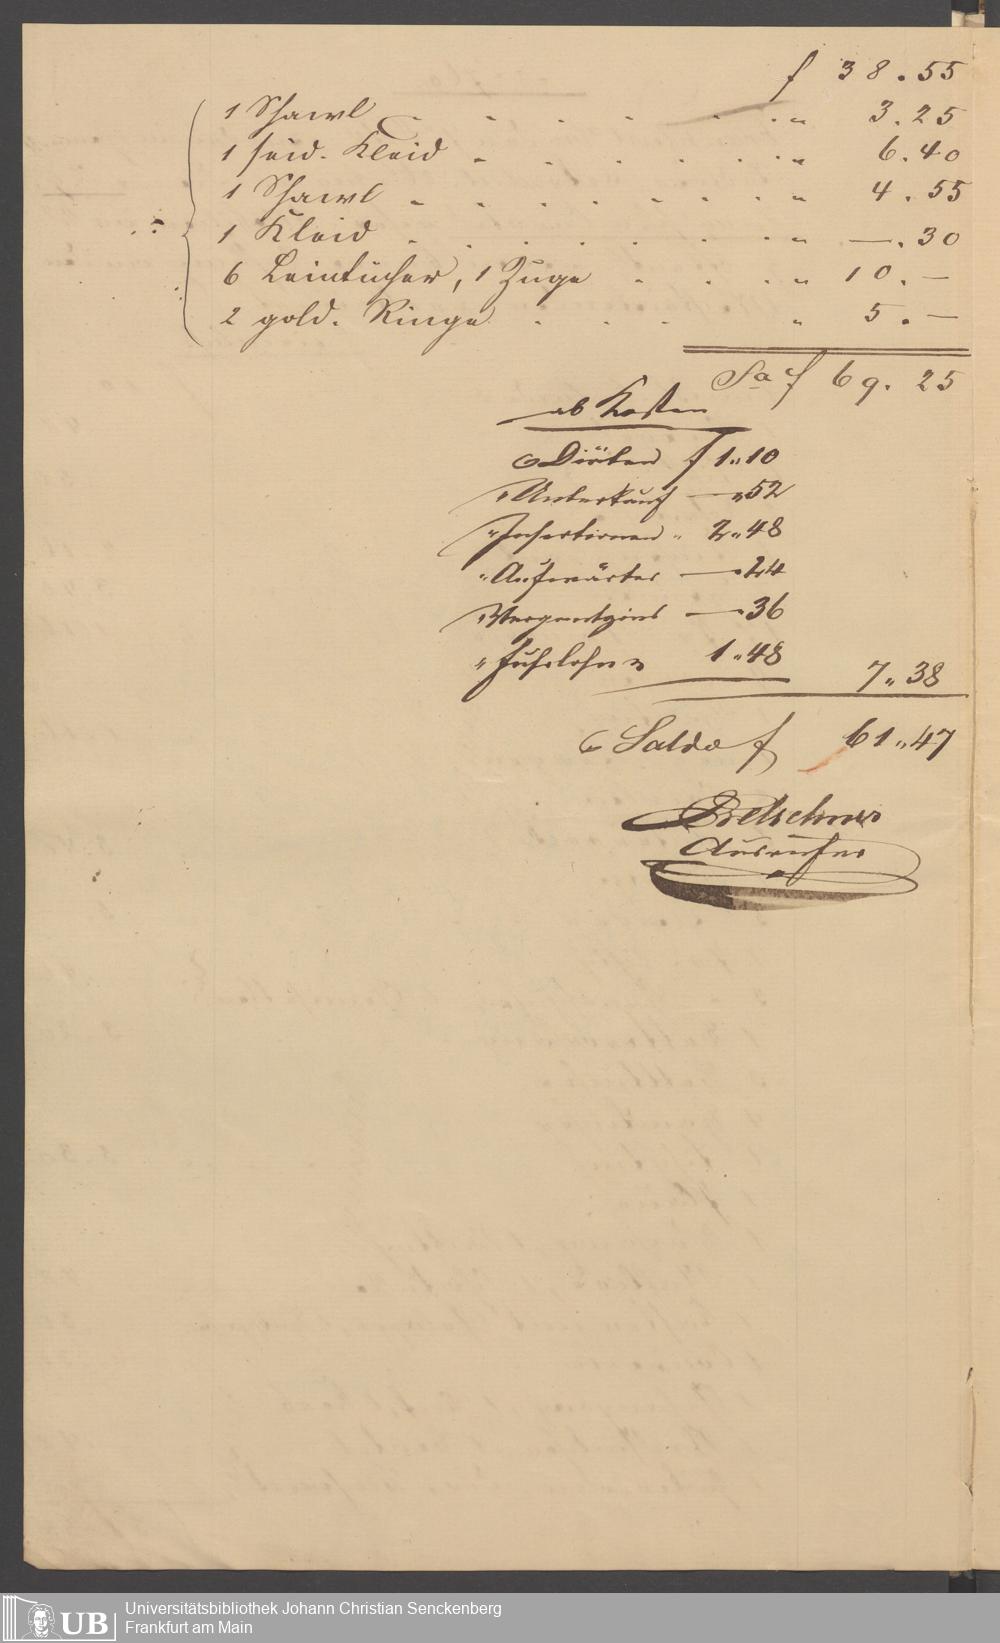 f 38.55
1 Shawl . . . . . . „ 3.25
1 seid. Kleid . . . . . . „ 6.40
1 Shawl . . . . . . . „ 4.55
1 Kleid . . . . . . . „ —.30
6 Leintücher, 1 Züge . . . „ 10.—
2 gold. Ringe . . . „ 5.—
Sa f 69.25
ab Kosten
Diäten f 1„10
„ Unterkauf —„52
„ Insertionen „ 2„48
„ Aufwärter —„24
—„36
„ Fuhrlohn „ 1„48
7„38
Saldo f 61„47
Ausrufer
UB Universitätsbibliothek Johann Christian Senckenberg
Frankfurt am Main